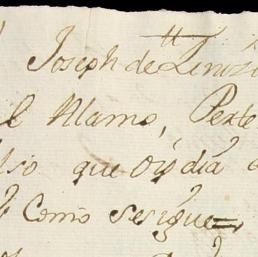 Joseph de
el Alamo, Perte
que oy dia
Como se sigue=